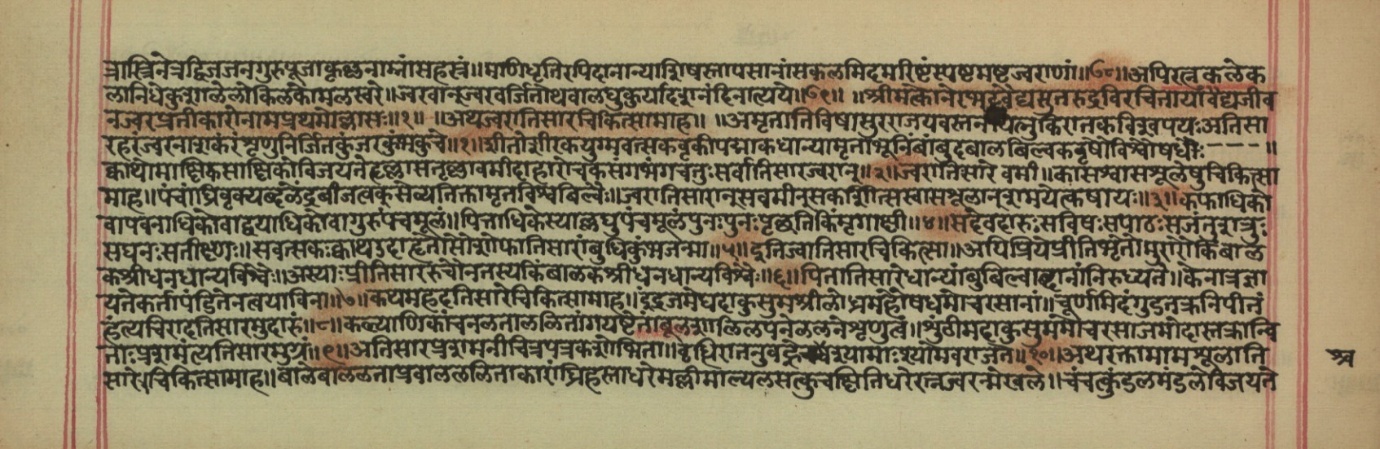 त्रास्त्रिनेत्रद्विजजनगुरुपूजाकृछनाम्नांसहस्रं॥मणिधृतिरपिदानान्याशिषस्तापसानांसकलमिदमरिष्टंस्पष्टमष्टज्वराणां॥७०॥अपिरत्नकलेक
लानिधेकुशलेलोकिलकोमलस्वरे॥ज्वरवानज्वरवर्जितोथवालघुकुर्यादशनंदिनात्यये॥७१॥ ॥श्रीमत्कानेरोभट्टवैद्यसूतरुद्रविरचितायांवैद्यजीव
नज्वरप्रतीकारोनामप्रथमोल्लासः॥१॥ ॥अथज्वरातिसारचिकित्सामाह॥ ॥अमृतातिविषासुरराजयवस्तन किरातकविश्वपयः अतिसा
रहरंज्वरनाशकरंशृणुनिर्जितकुंजरकुंभकुचे॥१॥शीतोशीरकयुग्मवत्सकवृकीपद्माकधान्यामृताभूनिंबांबुदबालबिल्वकवृषोविश्वौषधीः----॥
क्वाथोमाक्षिकसाक्षिकोविजयतेहृल्लासतृष्णावमीदाहारोचकसंगभंगचतुःसर्वातिसारज्वरान्॥२॥ज्वरातिसारे वमी॥कासश्वासशूलेषुचिकित्सा
माह॥पंचांघ्रिवृक्यब्दंळेंद्रबीजत्वक्सेव्यतिक्तामृतविश्वबिल्वैः॥ज्वरातिसारान्सवमीन्सकाशीत्सस्वासशूलान्शमयेत्कषायः॥३॥कफाधिको
वापवनाधिकोवाद्वयाधिकोवागुरुपंचमूलं॥पित्ताधिकेस्याल्लघुपंचमूलंपुनःपुनःपृछतिकिंमृगाक्षी॥४॥सदेवदारुःसविषःसपाठःसजंतुशत्रुः
सघनःसतीक्ष्णः॥सवत्सकःक्वाथउदाहृतोसोशोफातिसारांबुधिकुंभजन्मा॥५॥दुतिज्वातिसारचिकित्सा॥अपिप्रियेप्रीतिभृतांमुरारौकिंबाल
कश्रीधनधान्यविश्वैः॥अस्याःप्रीतिसाररुचोनतस्यकिंबाळकश्रीधनधान्यविश्वैः॥६॥पित्तातिसारेधान्यांबुबिल्वाब्दानांनिरुध्यते॥केनात्रज्ञा
यतेकर्तापंडितेनत्वयाविना॥७॥कथमहदतिसारेचिकित्सामाह॥इंद्रजमेघदाकुसुमश्रीलोध्रमहौषधमोचरसानां॥चूर्णमिदंगुडतक्रनिपीतं
हंत्यचिरादतिसारमुदारं॥८॥कल्याणिकांचनलताललितांगयष्टेतांबूलशालिलपनेललनेशृणुत्वं॥शुंठीमदाकुसुममोचरसाजमोदास्तक्रान्वि
ताःप्रशमंत्यतिसारमुग्रं॥९॥अतिसारप्रशमनी ॥१०॥अथरक्तामामशूलाति
सारे॥चिकित्सामाह॥बालेबाललताप्रवालललिताकारांघ्रिहस्ताधरेमल्लीमाल्यलसत्कुचक्षितिधरेरत्नज्वरन्मेखले॥चंचत्कुंडलमंडलेविजयते